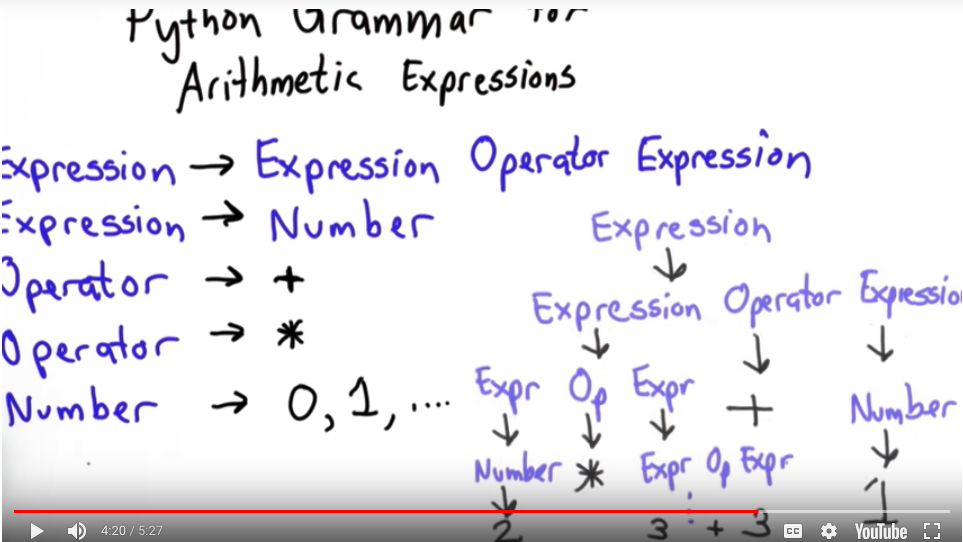 Python Grammar for
Arithmetic Expressions
Expression → Expression Operator Expression
Expression → Number
Operator → +
Operator → *
Number → 0, 1, ....
Expression
↓
Expression Operator Expression
↓ ↓ ↓
Expr Op Expr + Number
↓ ↓ ↓ ↓
Number * Expr Op Expr 1
↓ ⋮
2 3 + 3
4:20 / 5:27
CC
YouTube